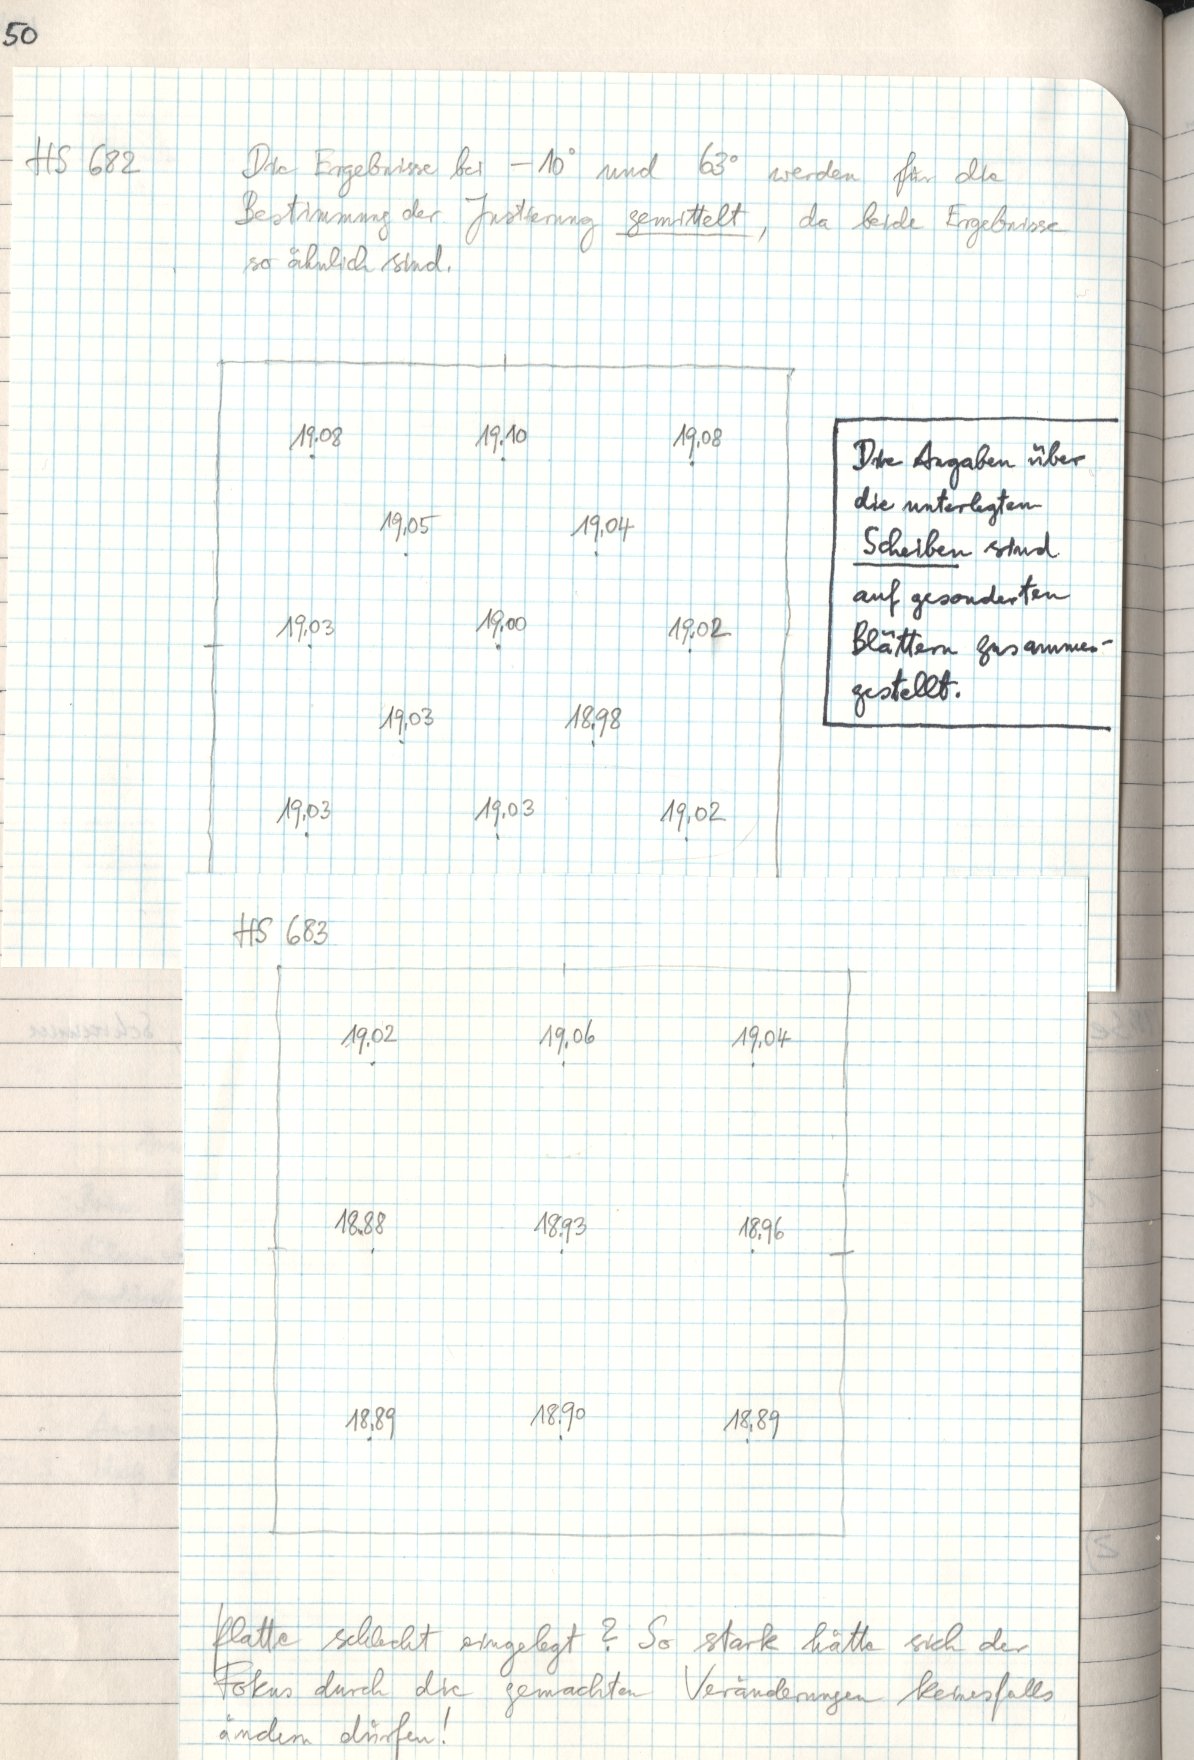 50
HS 682
Die Ergebnisse bei -10° und 63° werden für die
Bestimmung der Justierung gemittelt, da beide Ergebnisse
so ähnlich sind.
19,08 19,10 19,08
19,05 19,04
19,03 19,00 19,02
19,03 18,98
19,03 19,03 19,02
Die Angaben über
die unterlegten
Scheiben sind
auf gesonderten
Blättern zusammen-
gestellt.
HS 683
19,02 19,06 19,04
18,88 18,93 18,96
18,89 18,90 18,89
Platte schlecht eingelegt? So stark hätte sich der
Fokus durch die gemachten Veränderungen keinesfalls
ändern dürfen!